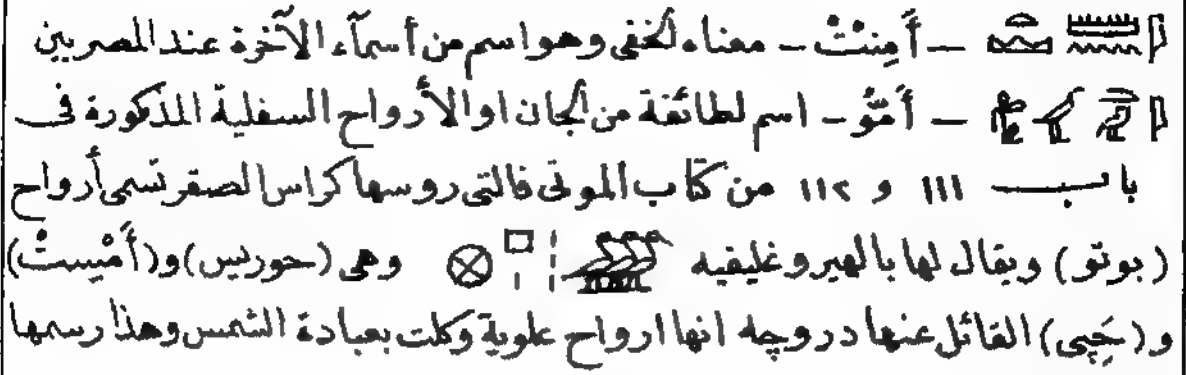 𓇋𓏠𓈖𓏏𓈉 — أَمِنتْ – معناه الخفى وهو اسم من أسمآء الآخرة عند المصريين
— أَمّؤ – اسم لطائفة من الجان او الأرواح السفلية المذكورة فى
باب ١١١ و ١١٢ من كتاب الموتى فالتى روسها كراس الصقر تسمى أرواح
(بوتو) ويقال لها بالهيروغليفيه وهى (حوريس) و(أَمْيستْ)
و(حَپى) القائل عنها دروجه انها ارواح علوية وكلت بعبادة الشمس وهذا رسمها